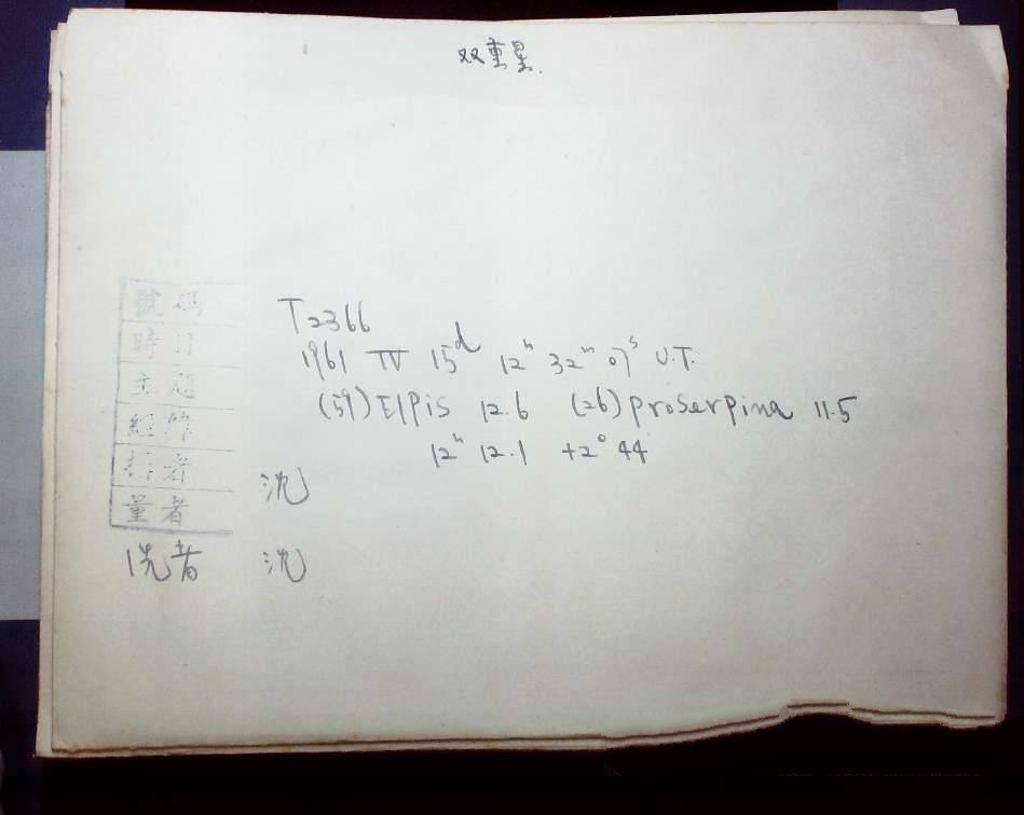 双重星.
號碼 T2366
時日 1961 IV 15ᵈ 12ʰ 32ᵐ 07ˢ U.T.
主題 (59) Elpis 12.6 (26) Proserpina 11.5
經緯 12ʰ 12.1 +2° 44
者 沈
量者
洗者 沈